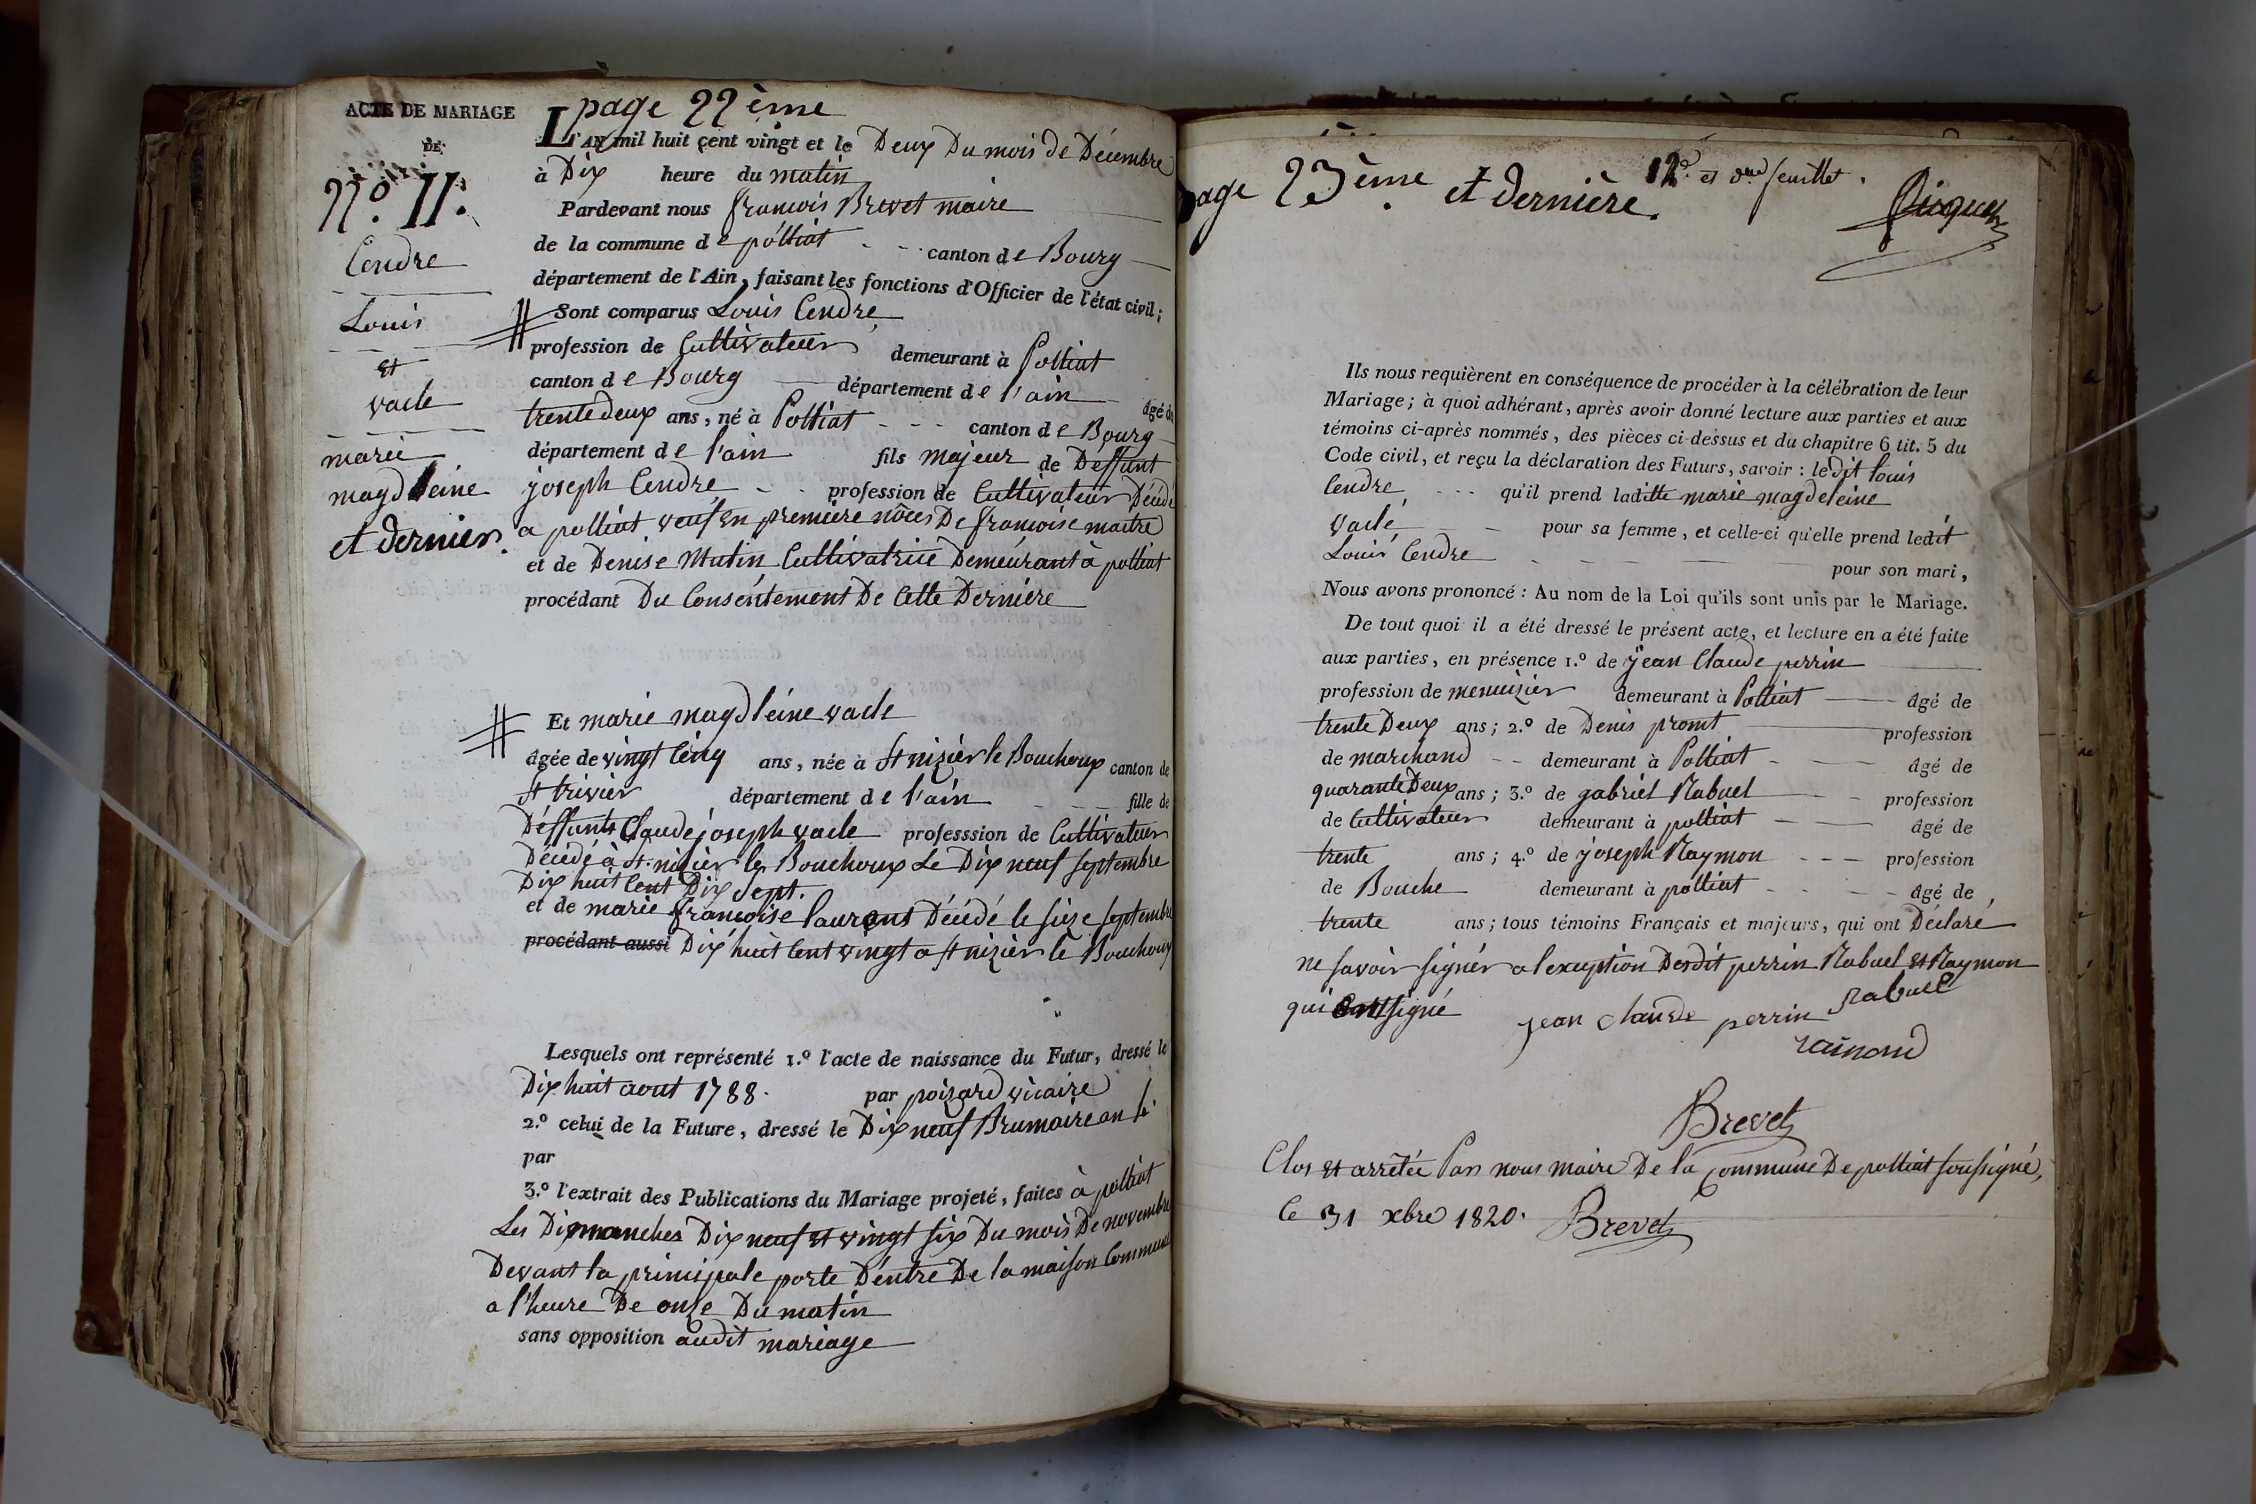 page 22ème
ACTE DE MARIAGE
DE
N.º 11.
Cendre
Louis
et
vacle
marie
magdleine
et dernier.
L'AN mil huit cent vingt et le Deux Du mois de Décembre
à Dix heure du matin
Pardevant nous françois Brevet maire
de la commune de polliat canton de Bourg
département de l'Ain, faisant les fonctions d'Officier de l'état civil;
Sont comparus Louis Cendre
profession de Cultivateur demeurant à Polliat
canton de Bourg département de l'ain âgé de
trente deux ans, né à Polliat canton de Bourg
département de l'ain fils majeur de Déffunt
joseph Cendre profession de Cultivateur Décédé
a polliat veuf En première nôces De françoise maitre
et de Denise Mutin Cultivatrice Demeurant à polliat
procédant Du Consentement De Cette Dernière
Et marie magdleine vacle
âgée de vingt Cinq ans, née à St nizier le Bouchoux canton de
St trivier département de l'ain fille de
Déffunts Claude joseph vacle professsion de Cultivateur
Décédé à St. nizier le Bouchoux Le Dix neuf septembre
Dix huit Cent Dix Sept.
et de marie françoise laurent Décédé le sieze septembre
procédant aussi Dix huit Cent vingt a St nizier le Bouchoux
Lesquels ont représenté 1.º l'acte de naissance du Futur, dressé le
Dix huit aout 1788. par poizard vicaire
2.º celui de la Future, dressé le Dix neuf Brumaire an
par
3.º l'extrait des Publications du Mariage projeté, faites à polliat
Les Dimanches Dix neuf et vingt six Du mois De novembre
Devant la principale porte D'entre De la maison Commune
a l'heure De onze Du matin
sans opposition audit mariage
page 23ème et dernière.
12e. et der feuillet.
Ils nous requièrent en conséquence de procéder à la célébration de leur
Mariage; à quoi adhérant, après avoir donné lecture aux parties et aux
témoins ci-après nommés, des pièces ci-dessus et du chapitre 6 tit. 5 du
Code civil, et reçu la déclaration des Futurs, savoir: le dit Louis
Cendre qu'il prend laditte marie magdeleine
vaclé pour sa femme, et celle-ci qu'elle prend ledit
Louis Cendre pour son mari,
Nous avons prononcé: Au nom de la Loi qu'ils sont unis par le Mariage.
De tout quoi il a été dressé le présent acte, et lecture en a été faite
aux parties, en présence 1.º de jean Claude perrin
profession de menuizier demeurant à Polliat âgé de
trente Deux ans; 2.º de Denis promt profession
de marchand demeurant à Polliat âgé de
quarante Deux ans; 3.º de gabriel Rabuel profession
de Cultivateur demeurant à polliat âgé de
trente ans; 4.º de joseph Raymon profession
de Bouche demeurant à polliat âgé de
trente ans; tous témoins Français et majeurs, qui ont Déclaré
ne savoir signér a l'exception Desdit perrin Rabuel et Raymon
qui ont signé jean claude perrin Rabuel
rainond
Brevet
Clos et arrêtée Par nous maire De la Commune De polliat soussigné,
le 31 xbre 1820. Brevet